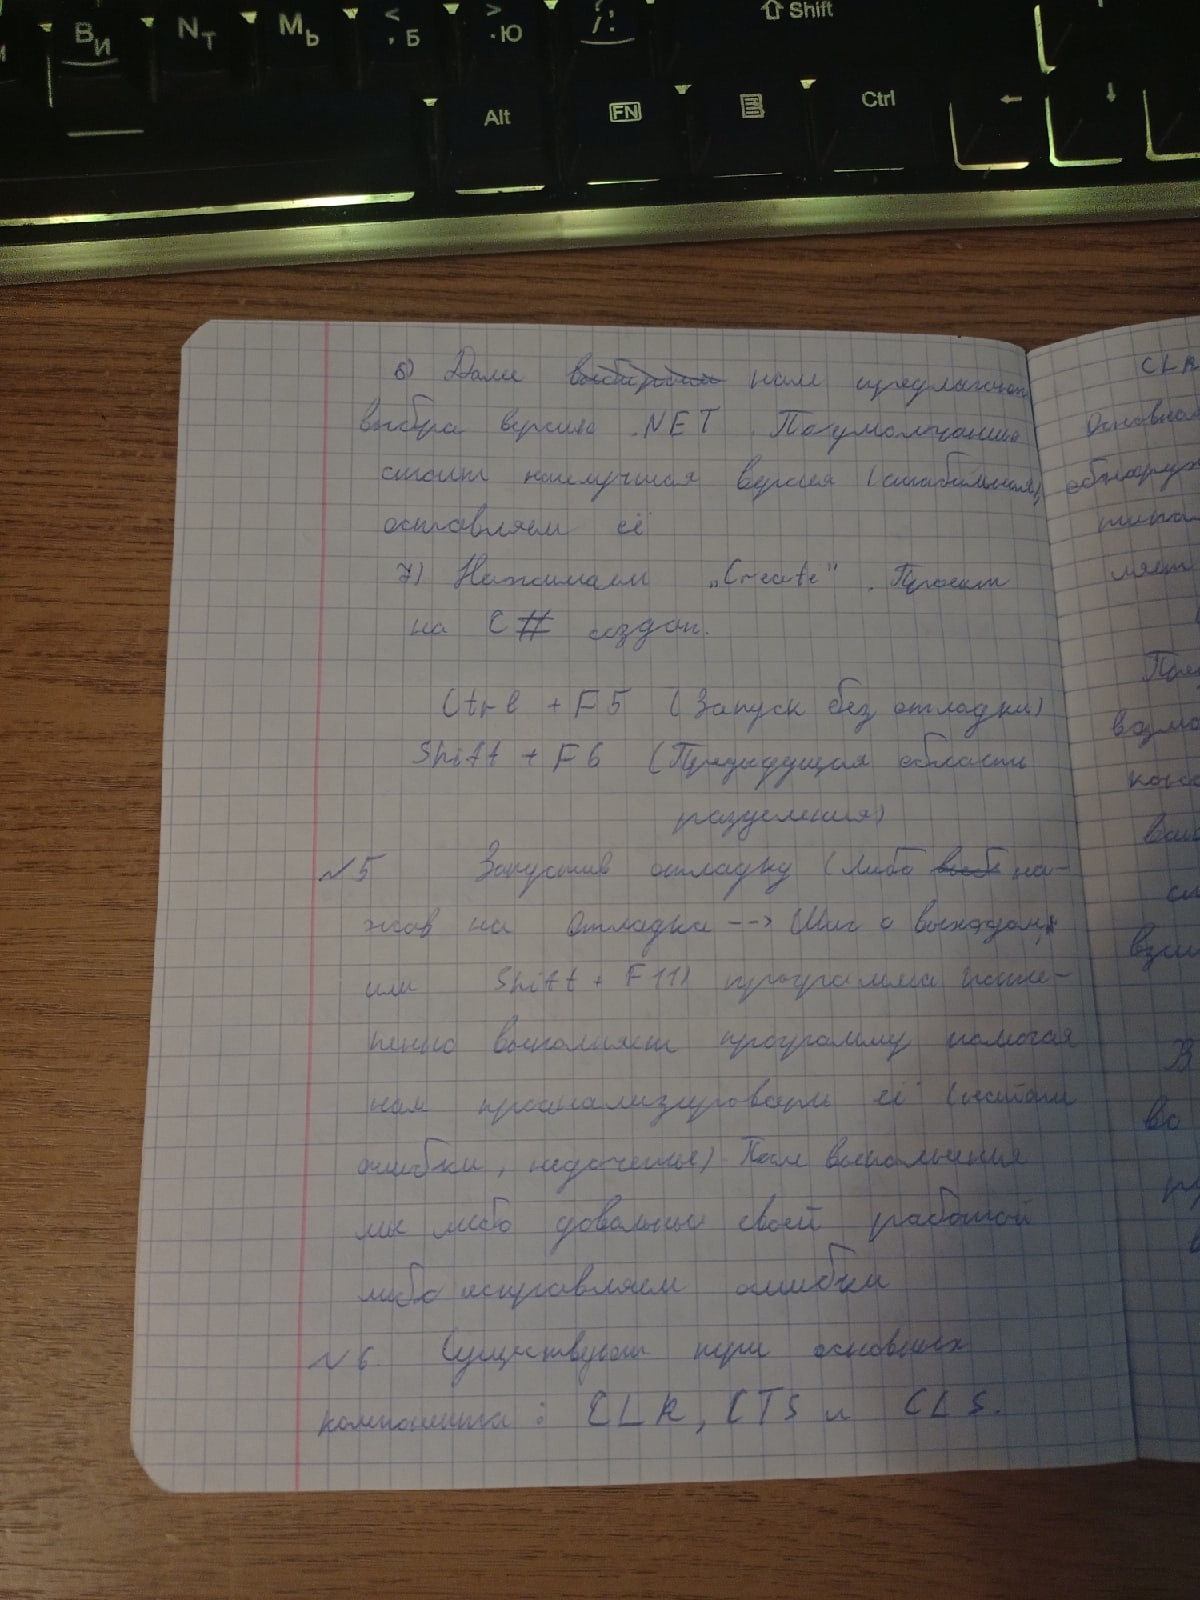 И
В И
N Т
M Ь
< , Б
> . Ю
? / :
⇧ Shift
Alt
FN
Ctrl
6) Далее нам предлагают
выбра версию .NET. Поумолчанию
стоит наилучшая версия (стабильная)
оставляем её
7) Нажимаем „Create". Проект
на C# создан.
Ctrl + F5 (Запуск без отладки)
Shift + F6 (Предыдущая область
разделения)
№5 Запустив отладку (либо на-
жав на Отладка --> Шаг с выходом,
или Shift + F11) программа посте-
пенно выполняет программу помогая
нам проанализировать её (найти
ошибки, недочёты). После выполнения
мы либо довольны своей работой
либо исправляем ошибки
№6. Существуют три основных
компонента: CLR, CTS и CLS.
CLR
Основной
обнаруж
типа
ляет
возмо
взаи
В
во